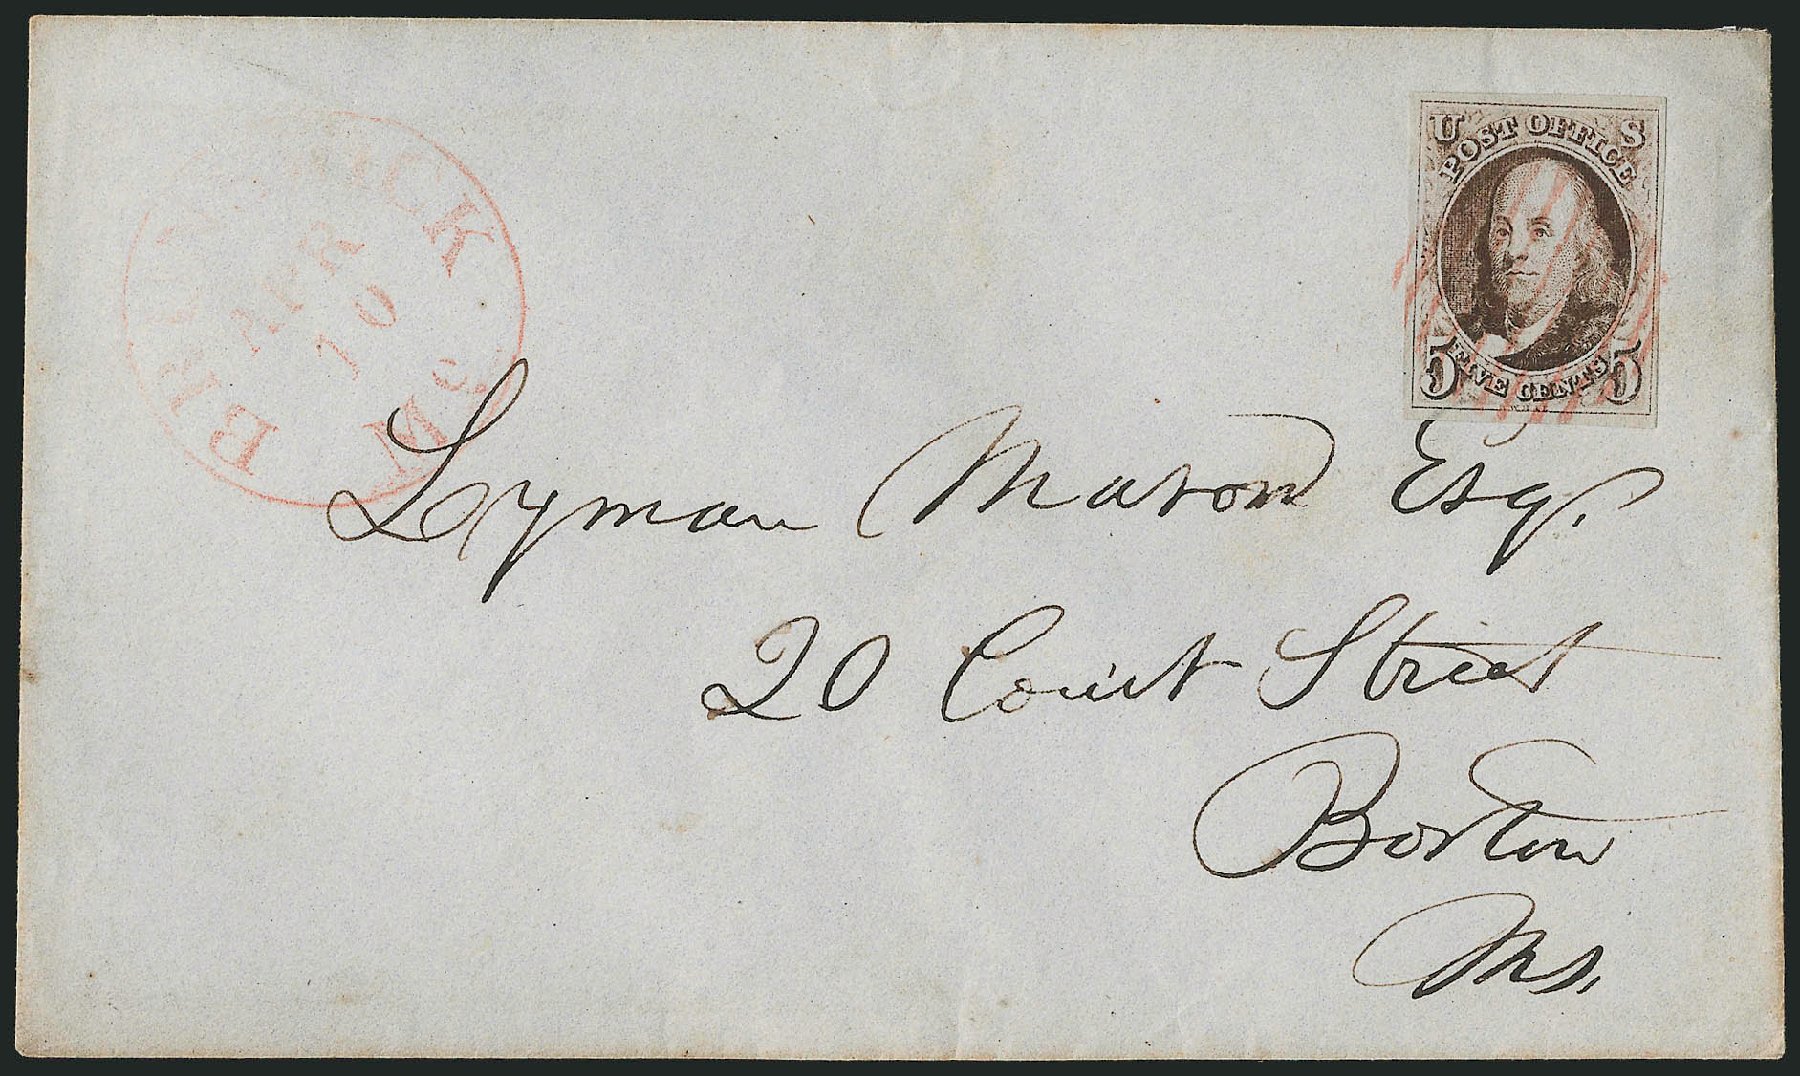 BRUNSWICK
APR
10
Me.
U S
POST OFFICE
5 FIVE CENTS 5
Lyman Mason Esq.
20 Court Street
Boston
Ms.